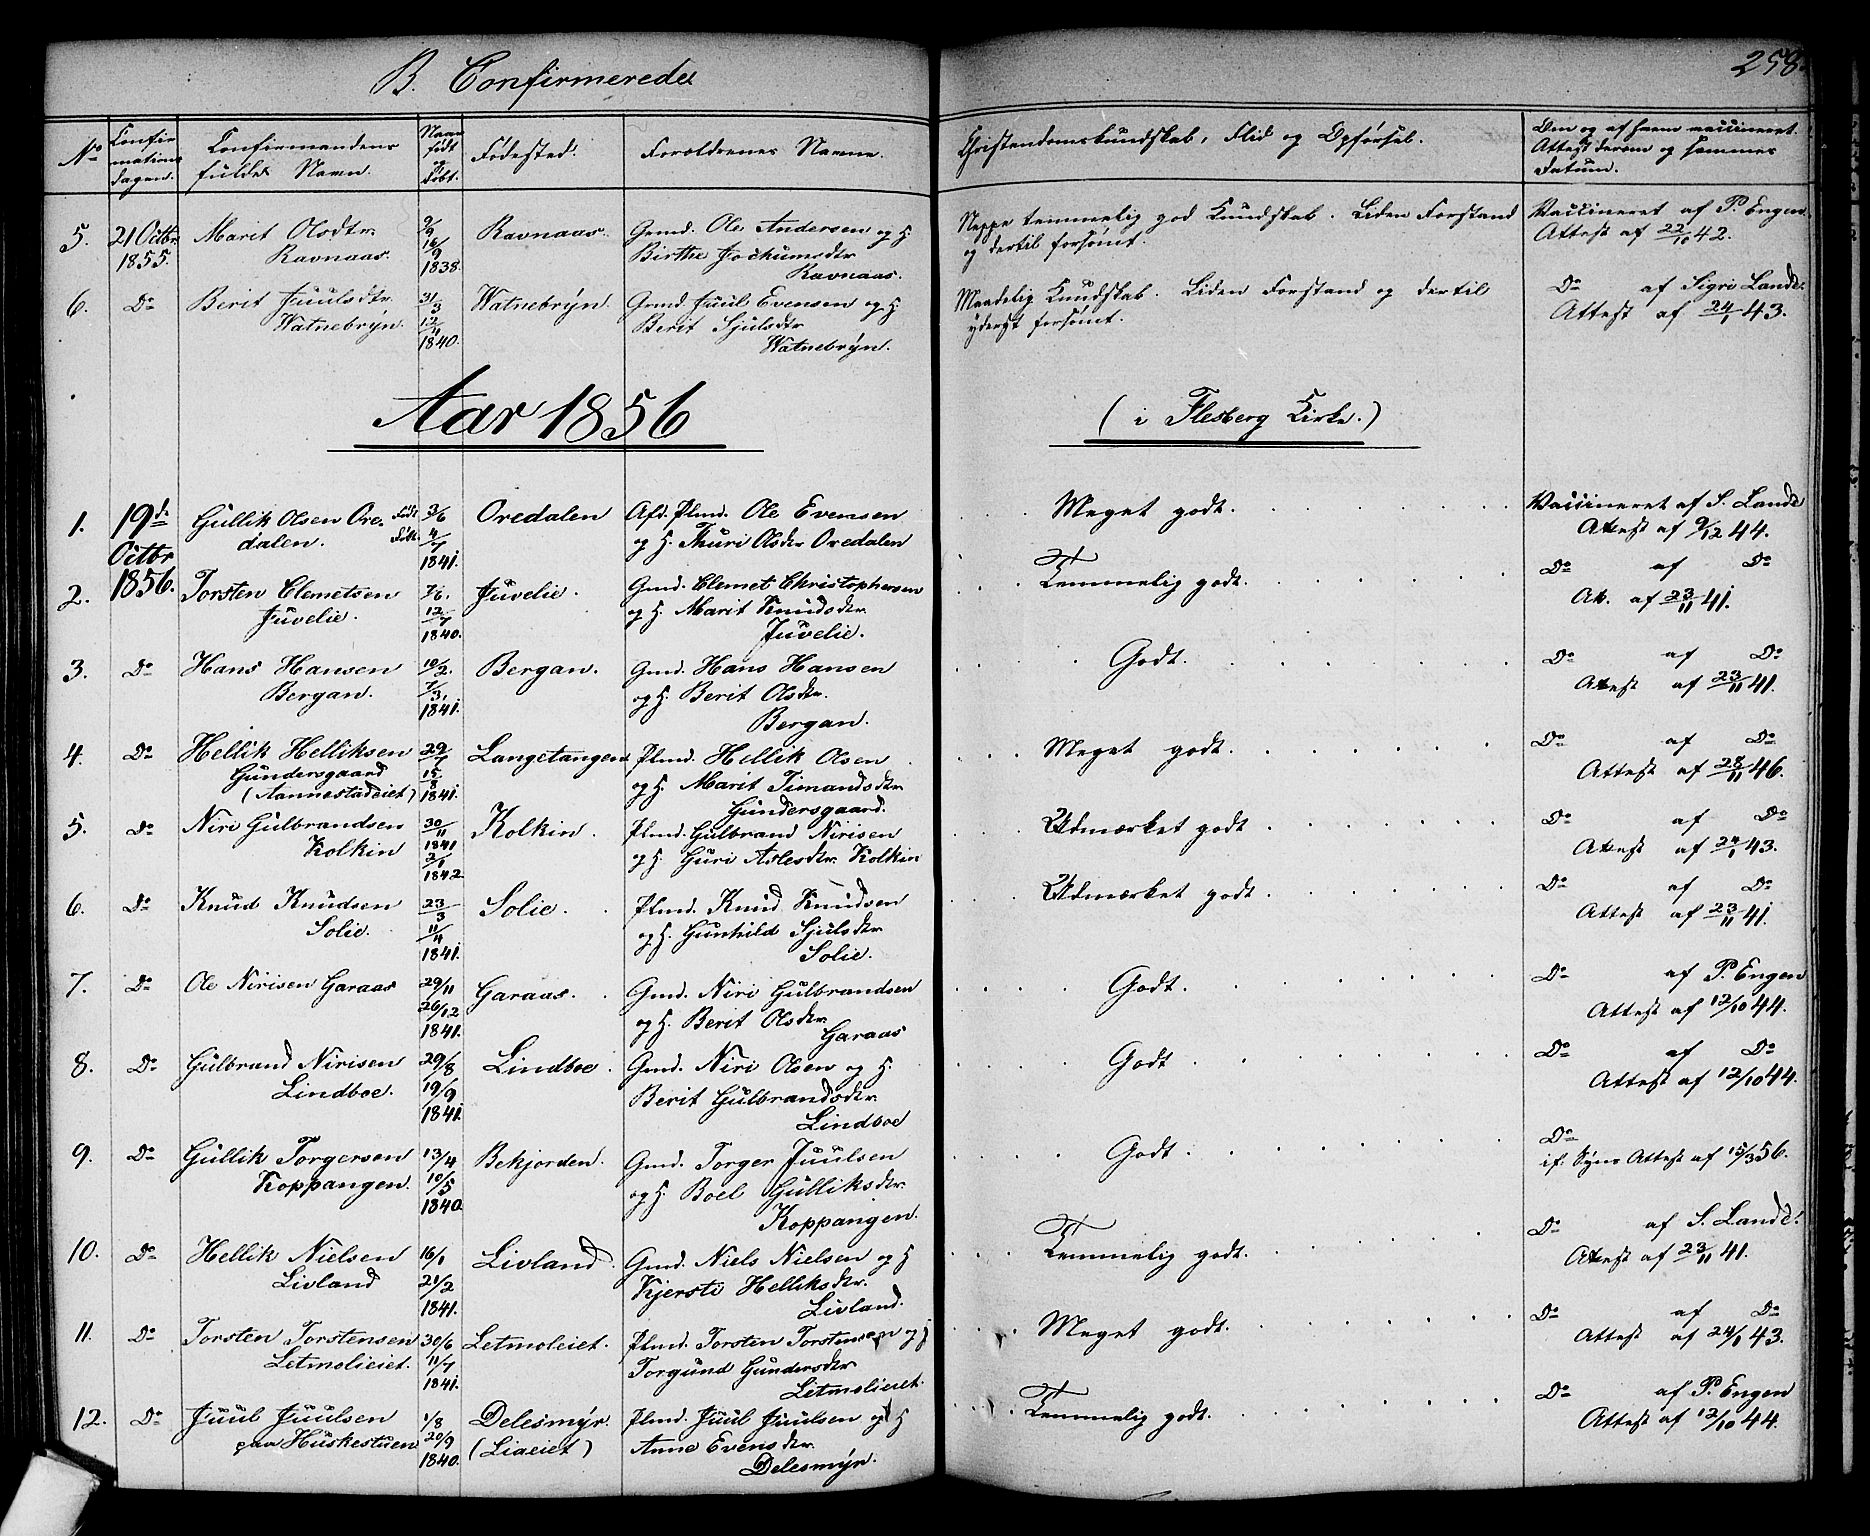 B. Confirmerede
258.
No
Confir
mations
dagen.
Confirmandens
fulde Navn.
Naar
født
og
døbt.
Fødested.
Forældrenes Navne.
Christendomskundskab, Flid og Opførsel.
Om og af hvem vaccineret.
Attest derom og sammes
Datum.
5. 21 Octbr 1855. Marit Olsdtr. 9/9 Ravnaas. Gmd. Ole Andersen og H Neppe temmelig god Kundskab. Liden Forstand Vaccineret af P. Engen.
Ravnaas. 16/9 1838. Birthe Jochumsdtr og dertil forsømt. Attest af 22/10 42.
Ravnaas.
6. Do Berit Juulsdtr. 31/3 Watnebrÿn. Gmd. Juul Evensen og H Maadelig Kundskab. Liden Forstand og dertil Do af Sigri Lande.
Watnebrÿn. 12/11 1840. Berit Sjulsdtr yderst forsømt. Attest af 24/1 43.
Watnebrÿn.
Aar 1856
(i Flesberg Kirke.)
1. 19d. Octbr 1856. Gullik Olsen Ore- Født 3/6 Oredalen Afd. Plmd. Ole Evensen Meget godt. Vaccineret af S. Lande
dalen. Døbt 4/7 1841. og H. Thuri Olsdtr Oredalen Attest af 9/12 44.
2. Torsten Clemetsen 7/6. Juvelie. Gmd. Clemet Christophersen Temmelig godt. Do af Do
Juvelie. 12/7 1840. og H. Marit Knudsdtr. At. af 23/11 41.
Juvelie.
3. Do Hans Hansen 10/2. Bergan. Gmd. Hans Hansen Godt. Do af Do
Bergan. 7/3. 1841. og H. Berit Olsdtr. Attest af 23/11 41.
Bergan.
4. Do Hellik Helliksen 29/7 Langetangen Plmd. Hellik Olsen Meget godt. Do af Do
Gundersgaard 15/8 og H. Marit Timandsdtr. Attest af 28/11 46.
(Aannestadeiet) 1841. Gundersgaard.
5. Do Niri Gulbrandsen 30/11 1841 Kolkin. Plmd. Gulbrand Nirisen Udmærket godt Do af Do
Kolkin 2/1 1842. og H. Guri Aslesdtr. Kolkin Attest af 24/1 43.
6. Do Knud Knudsen 23/3 Solie. Plmd. Knud Knudsen Udmærket godt. Do af Do
Solie. 11/4 1841. og H. Gunhild Sjulsdtr Attest af 23/11 41.
Solie.
7. Do Ole Nirisen Garaas 29/11 Garaas. Gmd. Niri Gulbrandsen Godt. Do af P. Engen
26/12 1841. og H. Berit Olsdtr. Attest af 12/10 44.
Garaas
8. Do Gulbrand Nirisen 29/8 Lindboe. Gmd. Niri Olsen og H. Godt Do af Do
Lindboe. 19/9 1841. Berit Gulbrandsdtr. Attest af 12/10 44.
Lindboe
9. Do Gullik Torgersen 13/4 Bekjorden. Gmd. Torger Juulsen Godt. Do
Koppangen. 10/5 1840. og H. Boel Gulliksdtr. if. Syns Attest af 15/3 56.
Koppangen.
10. Do Hellik Nielsen 16/1 Livland. Gmd. Niels Nielsen og H Temmelig godt. Do af S. Lande.
Livland 21/2 1841. Kjersti Helliksdtr. Attest af 23/11 41.
Livland.
11. Do Torsten Torstensen 30/6 Letmoleiet. Plmd. Torsten Torstensen og H Meget godt. Do af Do
Letmolieiet. 11/7 1841. Torgund Gundersdtr Attest af 24/1 43.
Letmolieiet.
12. Do Juul Juulsen 1/8 Delesmÿr. Plmd. Juul Juulsen og H Temmelig godt. Do af P. Engen
paa Huskestuen 20/9 1840. (Liaeiet) Anne Evensdtr. Attest af 12/10 44.
Delesmÿr.